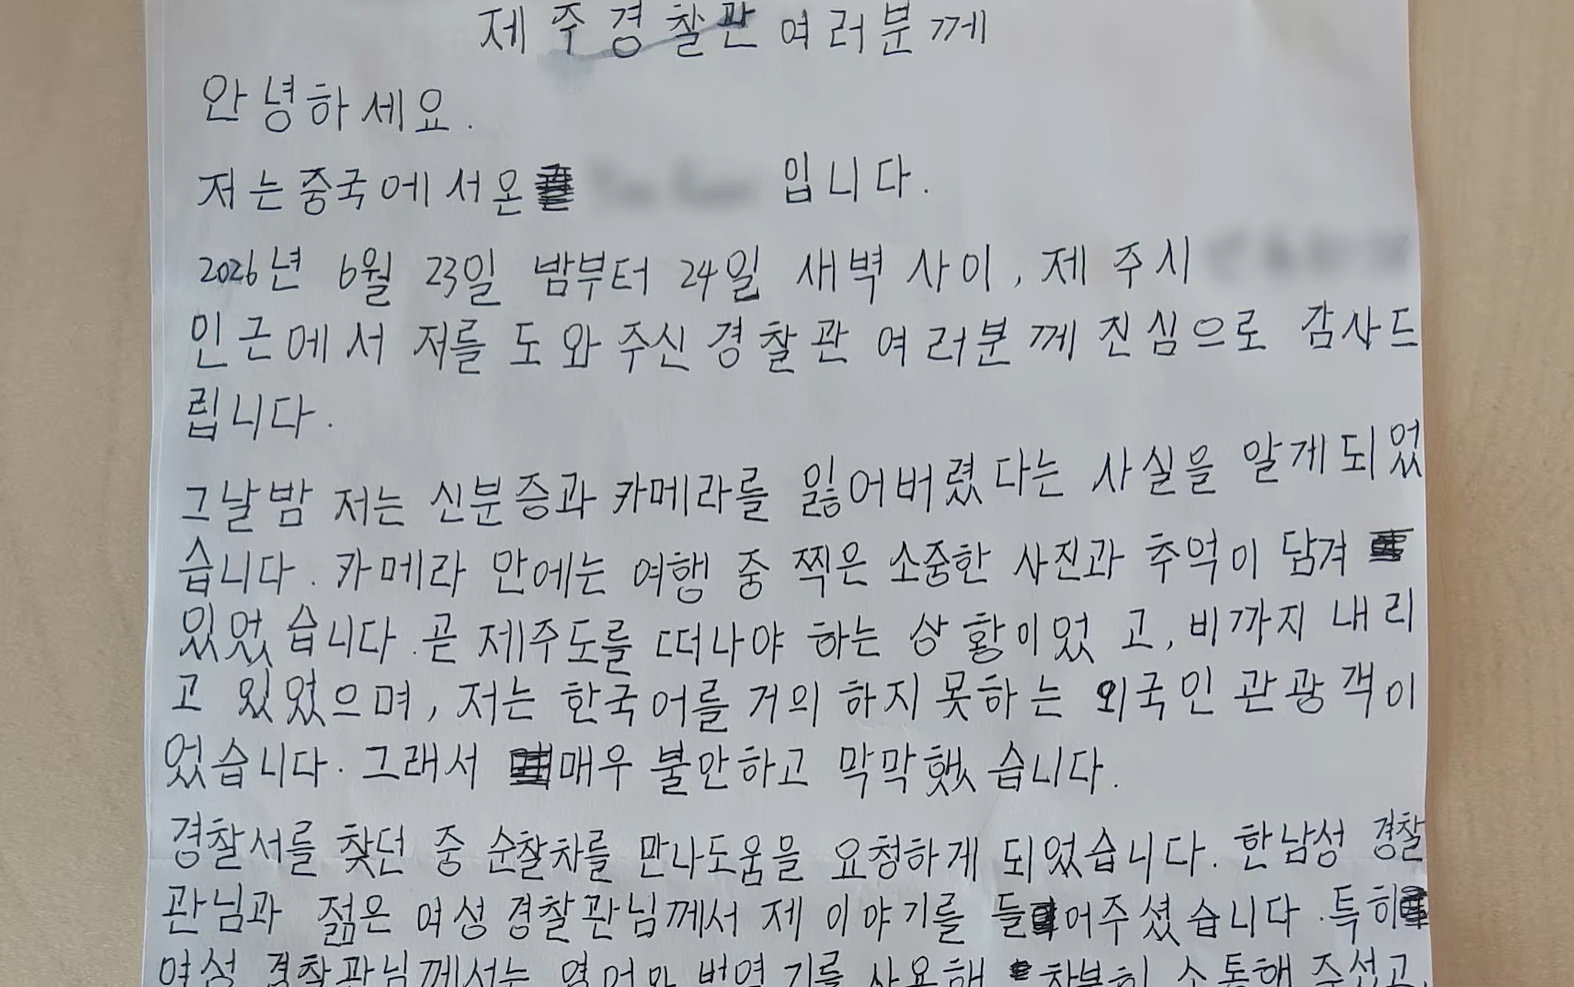 제주경찰관 여러분께
안녕하세요.
저는 중국에서 온 입니다.
2026년 6월 23일 밤부터 24일 새벽 사이, 제주시
인근에서 저를 도와주신 경찰관 여러분께 진심으로 감사드
립니다.
그날 밤 저는 신분증과 카메라를 잃어버렸다는 사실을 알게되었
습니다. 카메라 안에는 여행 중 찍은 소중한 사진과 추억이 담겨
있었습니다. 곧 제주도를 떠나야 하는 상황이었고, 비까지 내리
고 있었으며, 저는 한국어를 거의 하지 못하는 외국인 관광객이
었습니다. 그래서 매우 불안하고 막막했습니다.
경찰서를 찾던 중 순찰차를 만나 도움을 요청하게 되었습니다. 한 남성 경찰
관님과 젊은 여성 경찰관님께서 제 이야기를 들어주셨습니다. 특히
여성 경찰관님께서는 영어와 번역기를 사용해 차분히 소통해 주셨고,